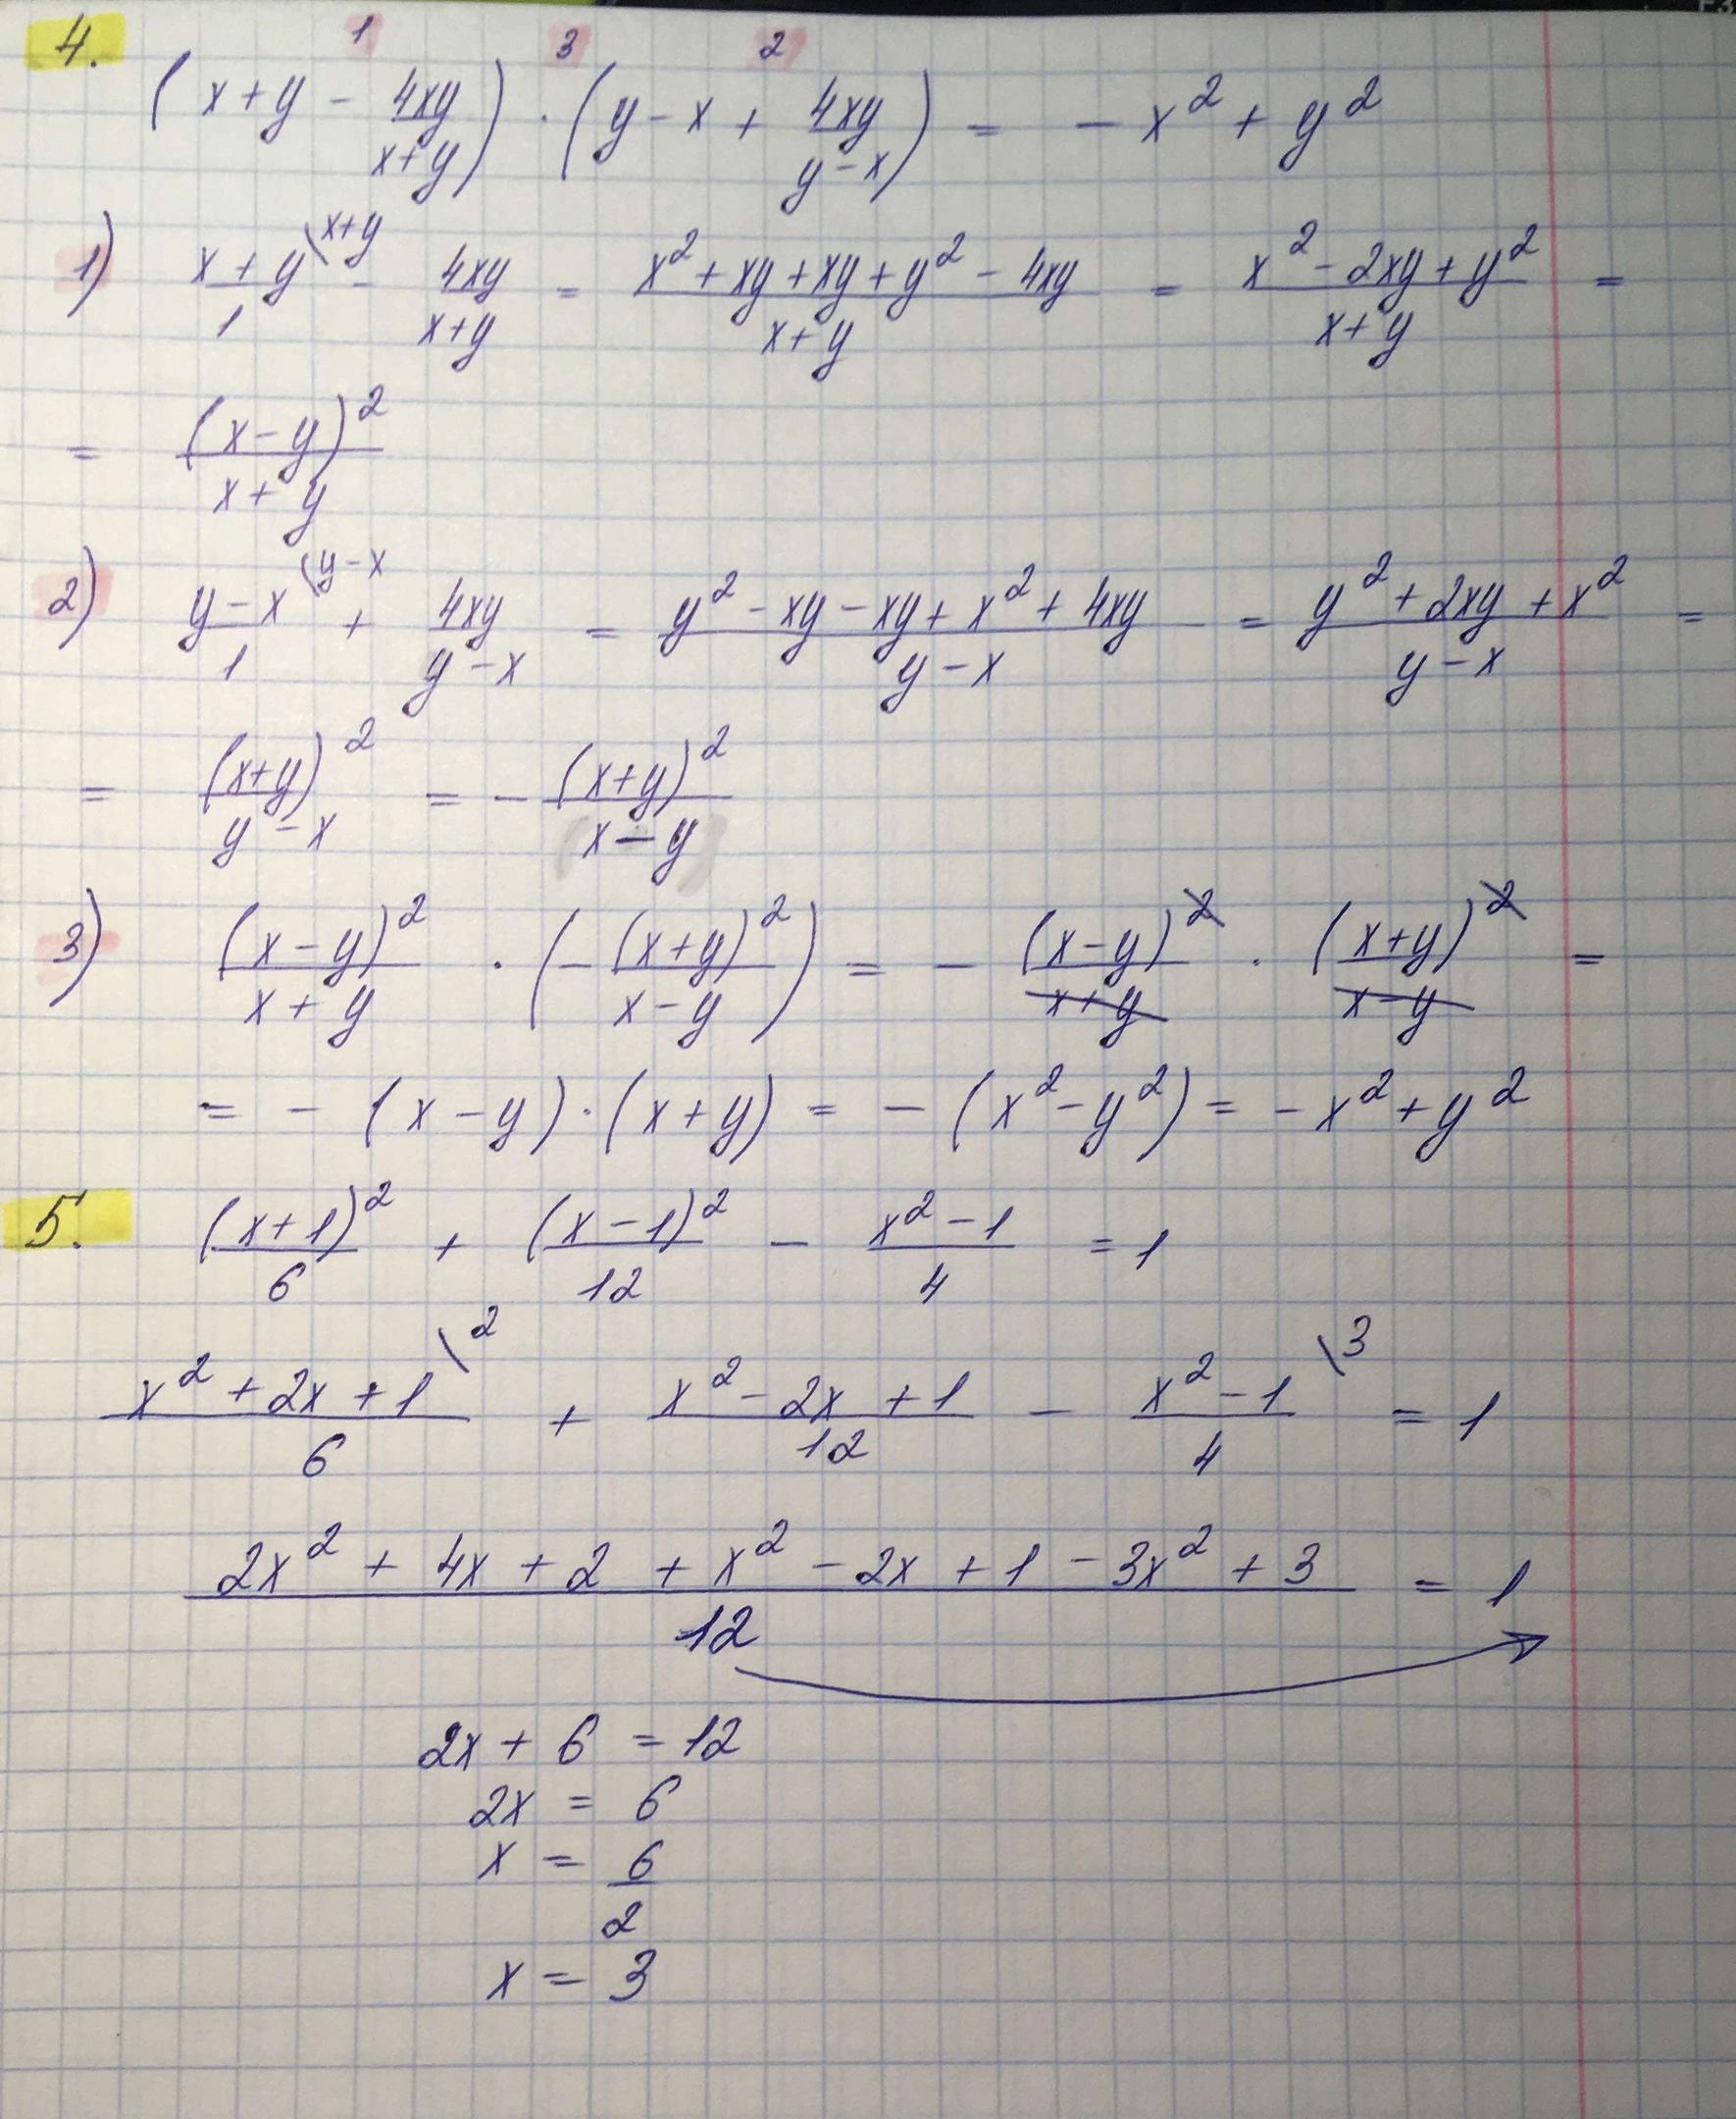 4. 1 3 2
(x+y - 4xy/x+y) · (y-x + 4xy/y-x) = -x² + y²
1) x+y/1 \x+y - 4xy/x+y = x² + xy + xy + y² - 4xy/x+y = x² - 2xy + y²/x+y =
= (x-y)²/x+y
2) y-x/1 \y-x + 4xy/y-x = y² - xy - xy + x² + 4xy/y-x = y² + 2xy + x²/y-x =
= (x+y)²/y-x = - (x+y)²/x-y
3) (x-y)²/x+y · (- (x+y)²/x-y) = - (x-y)²/x+y · (x+y)²/x-y =
= - (x-y) · (x+y) = - (x² - y²) = -x² + y²
5. (x+1)²/6 + (x-1)²/12 - x²-1/4 = 1
x² + 2x + 1/6 \2 + x² - 2x + 1/12 - x² - 1/4 \3 = 1
2x² + 4x + 2 + x² - 2x + 1 - 3x² + 3/12 = 1
2x + 6 = 12
2x = 6
x = 6/2
x = 3